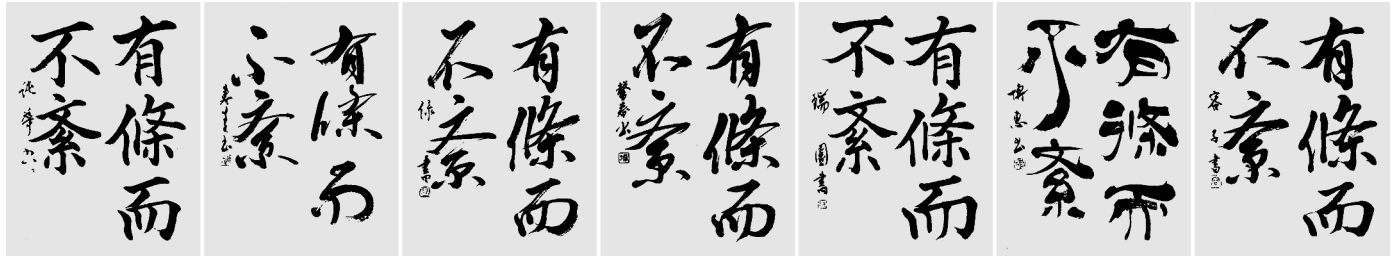 有條而
不紊
有條而
不紊
有條而
不紊
有條而
不紊
有條而
不紊
瑞圖書
有條而
不紊
有條而
不紊